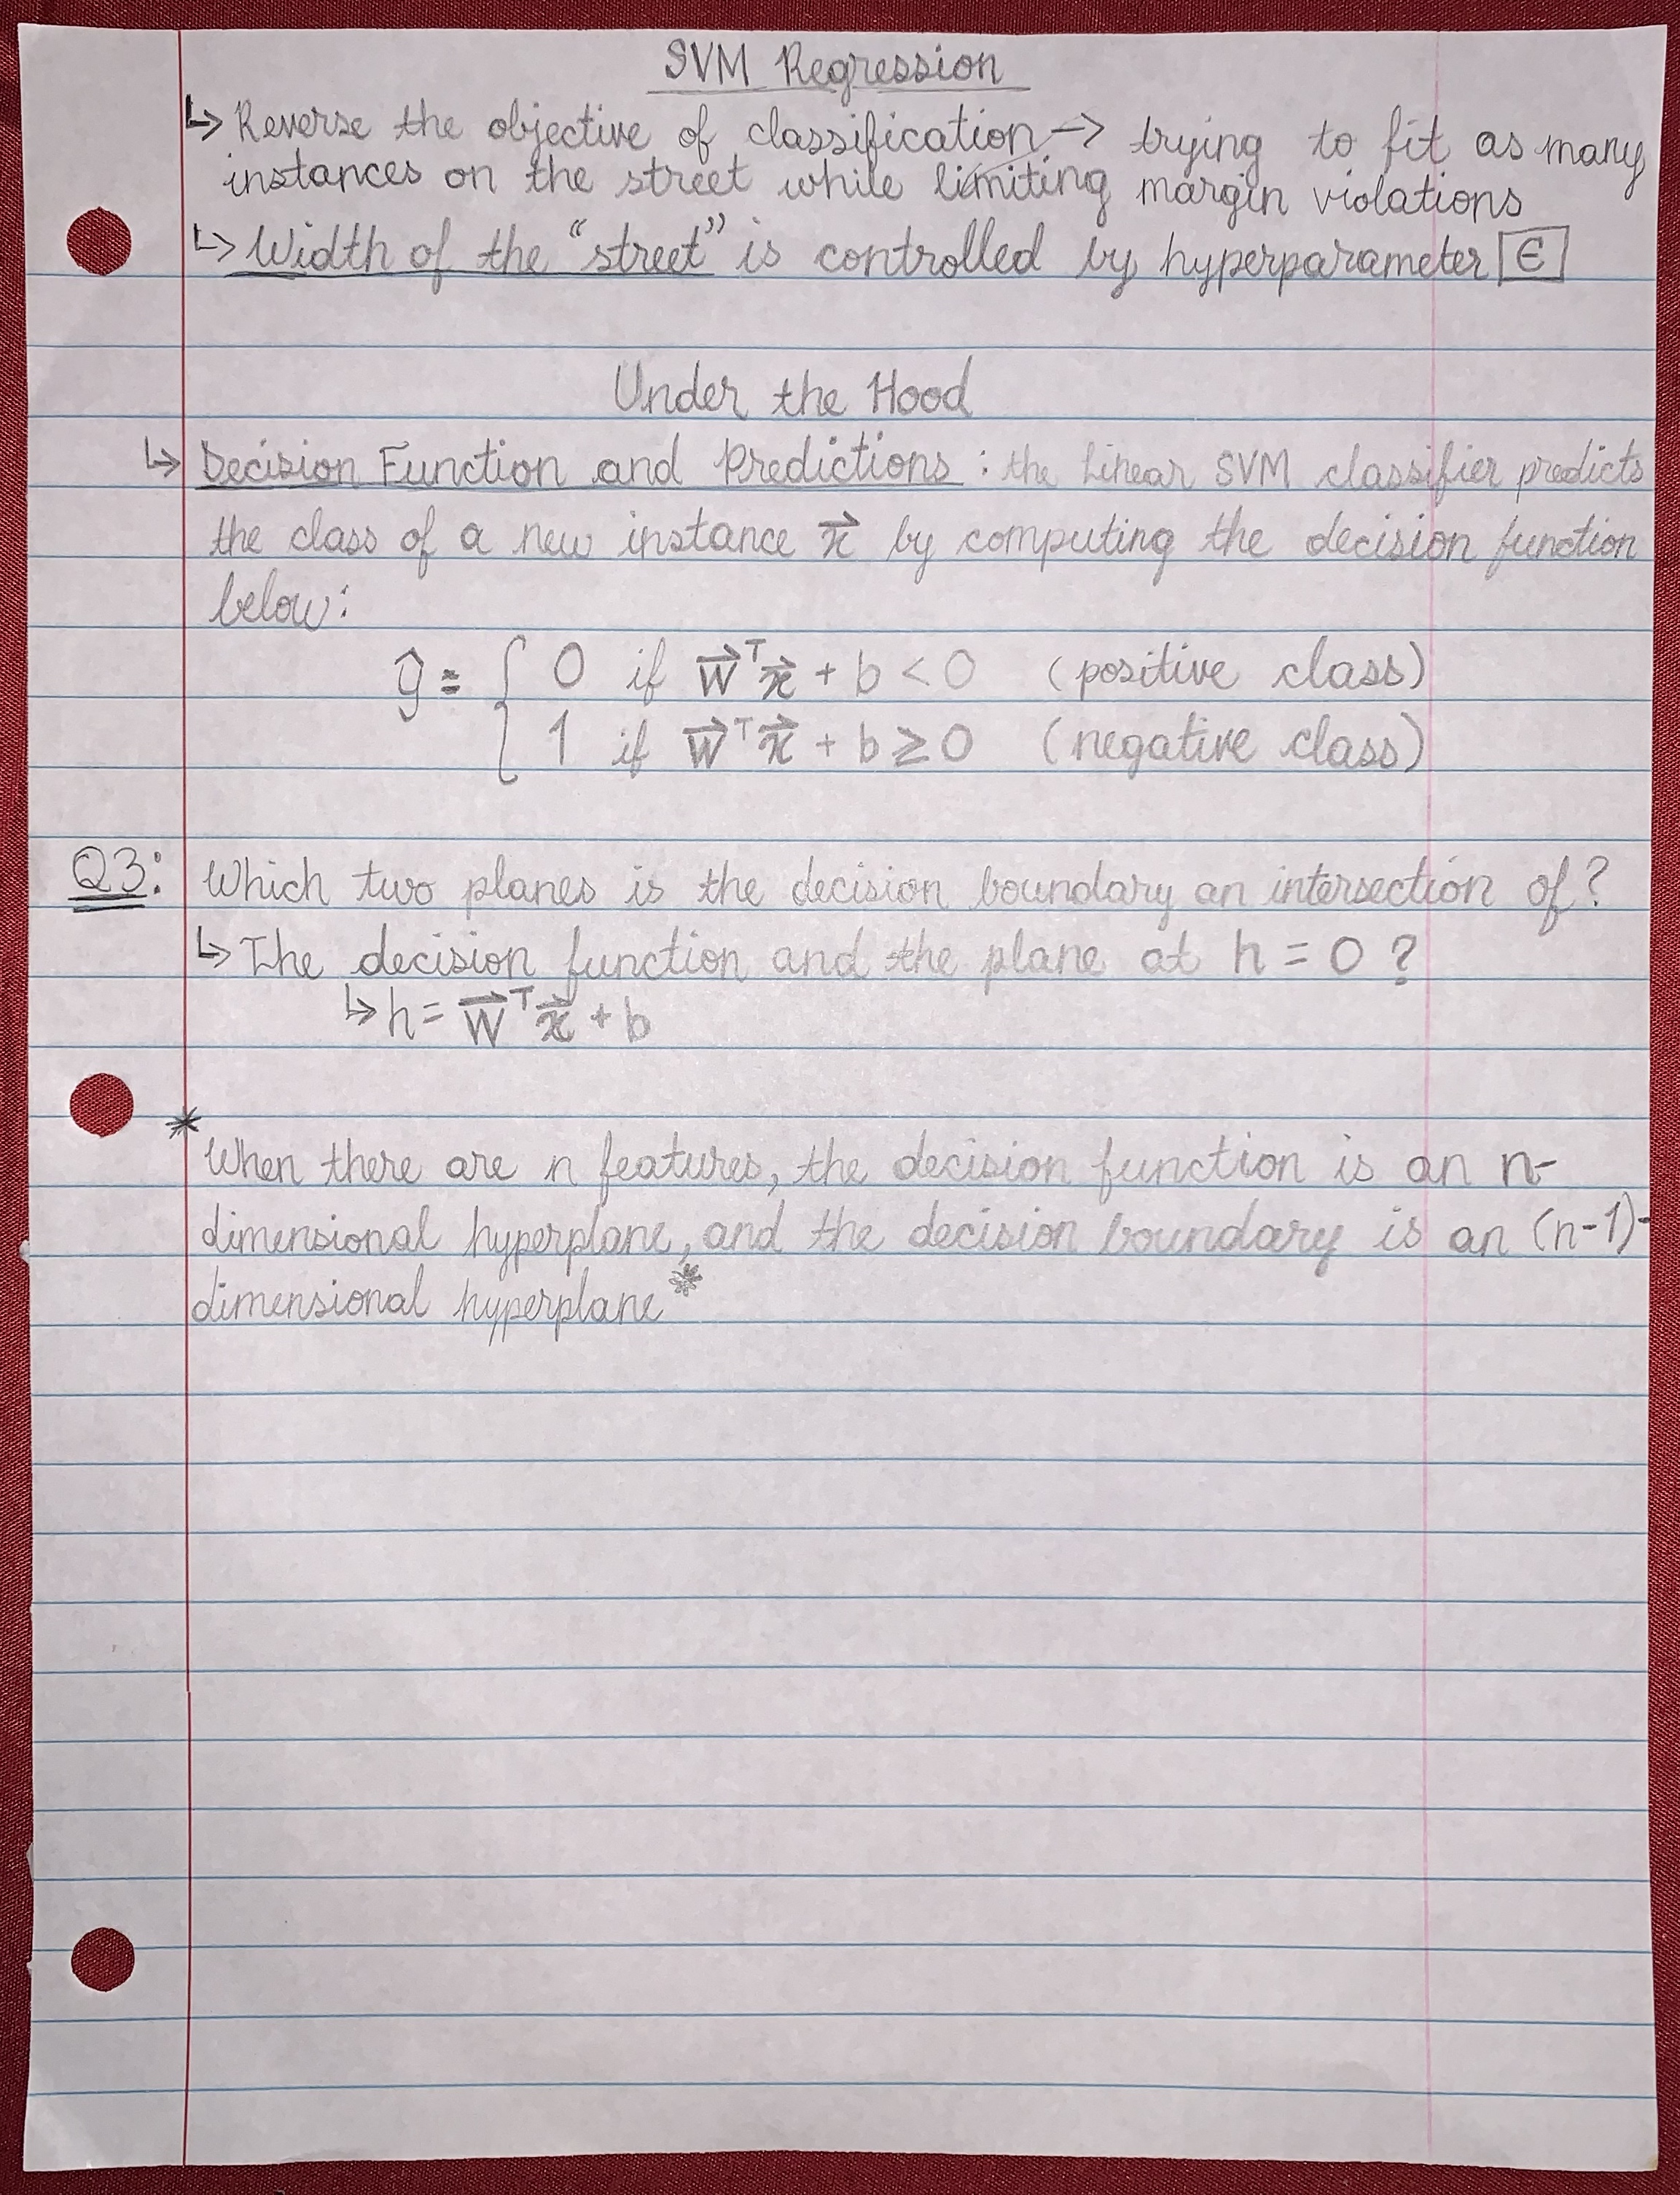 SVM Regression
↳ Reverse the objective of classification → trying to fit as many
instances on the street while limiting margin violations
↳ Width of the "street" is controlled by hyperparameter ϵ
Under the Hood
↳ Decision Function and Predictions : the Linear SVM classifier predicts
the class of a new instance x⃗ by computing the decision function
below:
ŷ = { 0 if w⃗ᵀx⃗ + b < 0 (positive class)
1 if w⃗ᵀx⃗ + b ≥ 0 (negative class)
Q3: Which two planes is the decision boundary an intersection of?
↳ The decision function and the plane at h = 0 ?
↳ h = w⃗ᵀx⃗ + b
* When there are n features, the decision function is an n-
dimensional hyperplane, and the decision boundary is an (n-1)-
dimensional hyperplane *